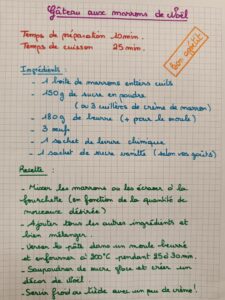 Gâteau aux marrons de Noël
Temps de préparation 10min.
Temps de cuisson 25 min.
bon appétit
Ingrédients :
- 1 boîte de marrons entiers cuits
- 150g de sucre en poudre
(ou 3 cuillères de crème de marron)
- 180g de beurre (+ pour le moule)
- 3 œufs
- 1 sachet de levure chimique
- 1 sachet de sucre vanillé (selon vos goûts)
Recette :
- Mixer les marrons ou les écraser à la
fourchette (en fonction de la quantité de
morceaux désirée)
- Ajouter tous les autres ingrédients et
bien mélanger.
- Verser la pâte dans un moule beurré
et enfourner à 200°C pendant 25 à 30min
- Saupoudrer de sucre glace et créer un
décor de Noël.
- Servir froid ou tiède avec un peu de crème!